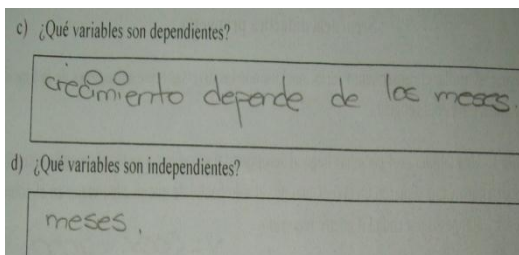 c) ¿Qué variables son dependientes?
crecimiento depende de los meses.
d) ¿Qué variables son independientes?
meses.